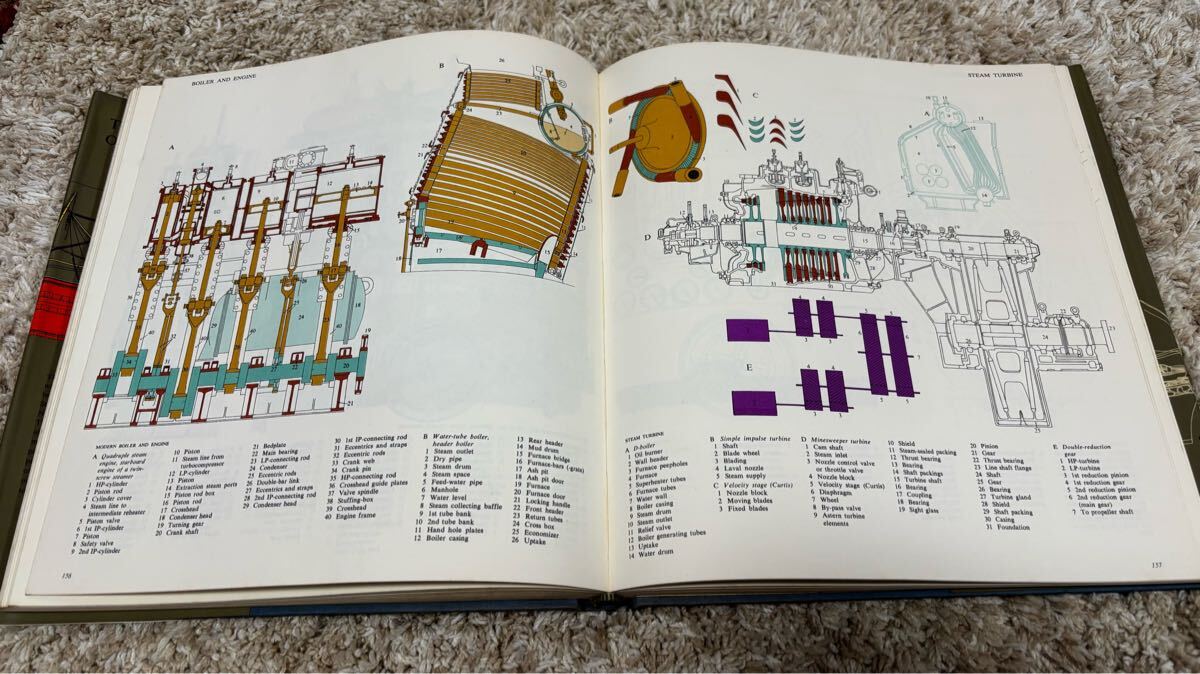 BOILER AND ENGINE
MODERN BOILER AND ENGINE
A Quadruple steam
engine, starboard
engine of a twin-
screw steamer
1 HP-cylinder
2 Piston rod
3 Cylinder cover
4 Steam line to
intermediate reheater
5 Piston valve
6 1st IP-cylinder
7 Piston
8 Safety valve
9 2nd IP-cylinder
10 Piston
11 Steam line from
turbocompressor
12 LP-cylinder
13 Piston
14 Extraction steam ports
15 Piston rod box
16 Piston rod
17 Crosshead
18 Condenser head
19 Turning gear
20 Crank shaft
21 Bedplate
22 Main bearing
23 LP-connecting rod
24 Condenser
25 Eccentric rods
26 Double-bar link
27 Eccentrics and straps
28 2nd IP-connecting rod
29 Condenser head
30 1st IP-connecting rod
31 Eccentrics and straps
32 Eccentric rods
33 Crank web
34 Crank pin
35 HP-connecting rods
36 Crosshead guide plates
37 Valve spindle
38 Stuffing-box
39 Crosshead
40 Engine frame
B Water-tube boiler,
header boiler
1 Steam outlet
2 Dry pipe
3 Steam drum
4 Steam space
5 Feed-water pipe
6 Manhole
7 Water level
8 Steam collecting baffle
9 1st tube bank
10 2nd tube bank
11 Hand hole plates
12 Boiler casing
13 Rear header
14 Mud drum
15 Furnace bridge
16 Furnace-bars (-grate)
17 Ash pit
18 Ash pit door
19 Furnace
20 Furnace door
21 Locking handle
22 Front header
23 Return tubes
24 Cross box
25 Economizer
26 Uptake
156
STEAM TURBINE
STEAM TURBINE
A D-boiler
1 Oil burner
2 Wall header
3 Furnace peepholes
4 Furnace
5 Superheater tubes
6 Furnace tubes
7 Water wall
8 Boiler casing
9 Steam drum
10 Steam outlet
11 Relief valve
12 Boiler generating tubes
13 Uptake
14 Water drum
B Simple impulse turbine
1 Shaft
2 Blade wheel
3 Blading
4 Laval nozzle
5 Steam supply
C Velocity stage (Curtis)
1 Nozzle block
2 Moving blades
3 Fixed blades
D Minesweeper turbine
1 Cam shaft
2 Steam inlet
3 Nozzle control valve
or throttle valve
4 Nozzle block
5 Velocity stage (Curtis)
6 Diaphragm
7 Wheel
8 By-pass valve
9 Astern turbine
elements
10 Shield
11 Steam-sealed packing
12 Thrust bearing
13 Bearing
14 Shaft packings
15 Turbine shaft
16 Bearing
17 Coupling
18 Bearing
19 Sight glass
20 Pinion
21 Gear
22 Thrust bearing
23 Line shaft flange
24 Shaft
25 Gear
26 Bearing
27 Turbine gland
28 Shield
29 Shaft packing
30 Casing
31 Foundation
E Double-reduction
gear
1 HP-turbine
2 LP-turbine
3 1st reduction pinion
4 1st reduction gear
5 2nd reduction pinion
6 2nd reduction gear
(main gear)
7 To propeller shaft
157